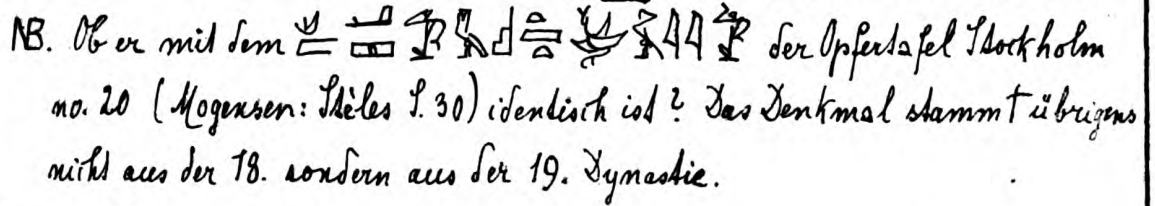 NB. Ob er mit dem der Opfertafel Stockholm
no. 20 (Mogensen: Stèles S. 30) identisch ist? Das Denkmal stammt übrigens
nicht aus der 18. sondern aus der 19. Dynastie.